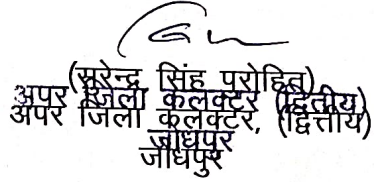 (सुरेन्द्र सिंह पुरोहित)
अपर जिला कलक्टर (द्वितीय)
अपर जिला कलक्टर, (द्वितीय)
जोधपुर
जोधपुर